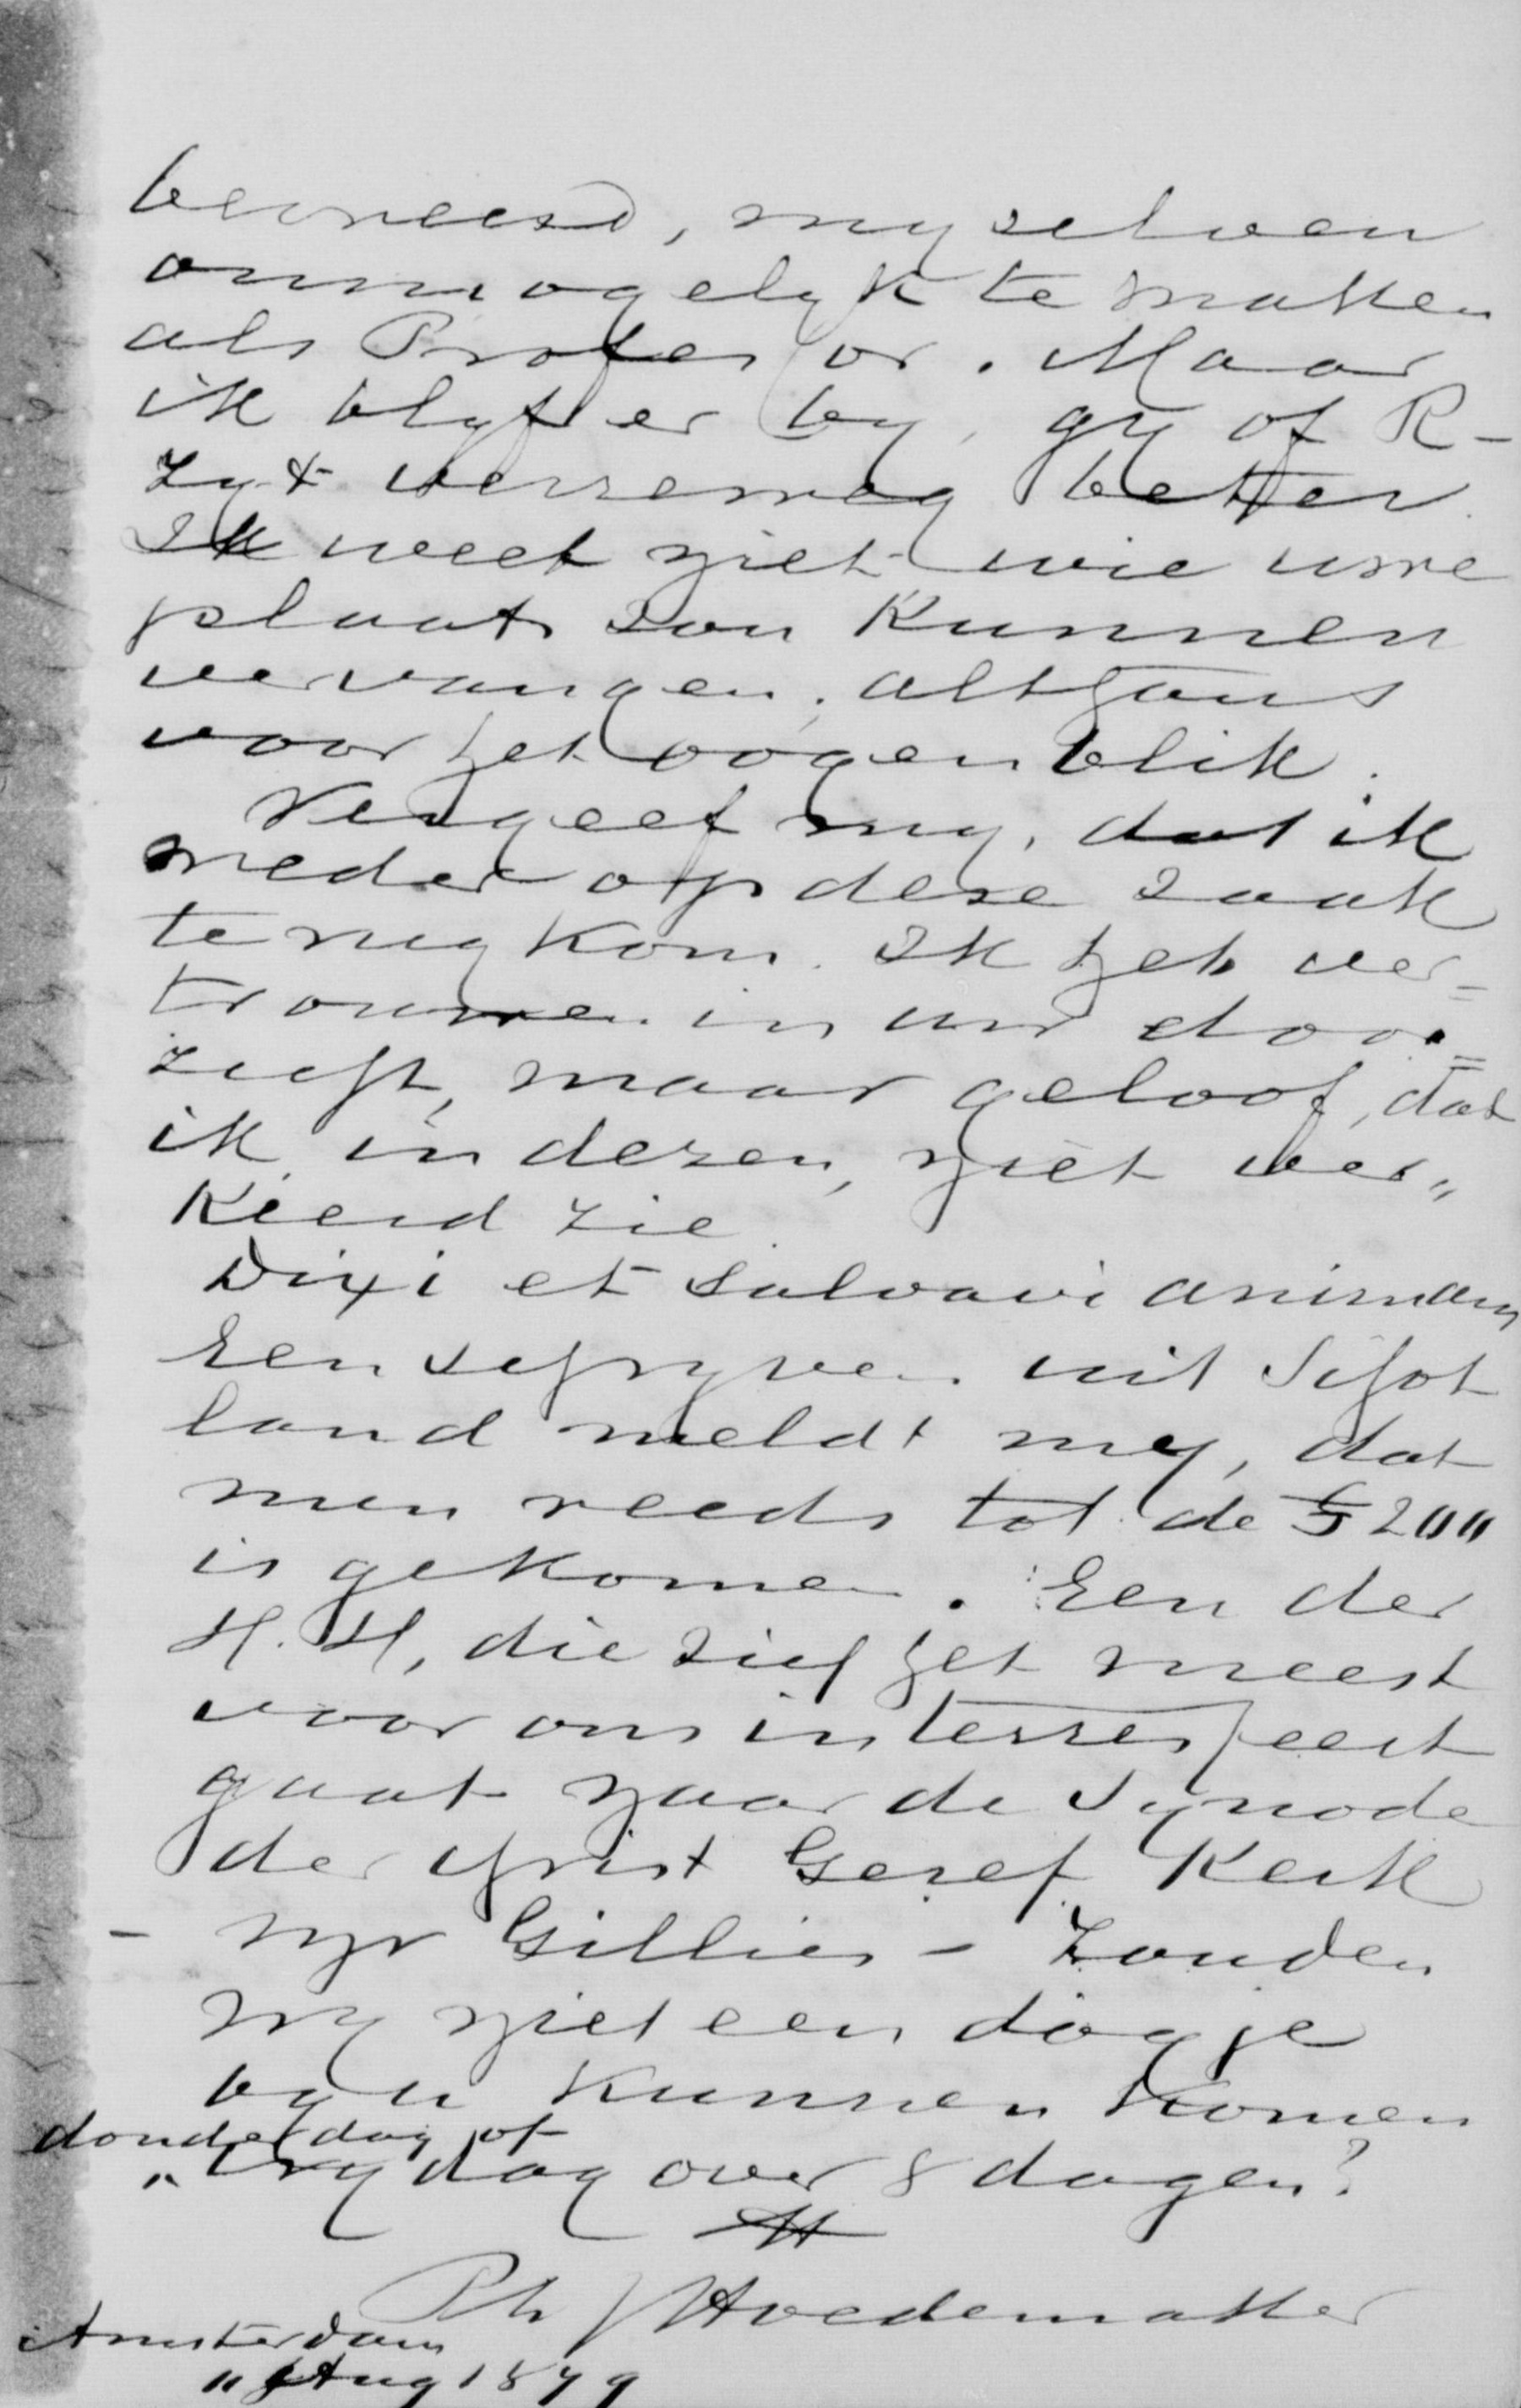 bevreesd, my zelven
onmogelyk te maken
als Professor. Maar
ik blyf er by, gy of R-
zyt verreweg beter.
Ik weet niet wie uwe
plaats zou kunnen
vervangen, althans
voor het oogenblik.
Vergeef my, dat ik
weder op deze zaak
terugkom. Ik heb ver=
trouwen in uw door=
zicht, maar geloof, dat
ik, in dezen, niet ver„
keerd zie.
Dixi et salvavi animam
Een schryven uit Schot
land meldt my, dat
men reeds tot de £ 200
is gekomen. Een der
H.H, die zich het meest
voor ons interresseert
gaat naar de Synode
der Christ Geref Kerk
- Mr Gillies - Zouden
wy niet een dagje
by u kunnen komen
donderdag of
„vrydag over 8 dagen?
tt
Ph J Hoedemaker
Amsterdam
11 Aug 1879